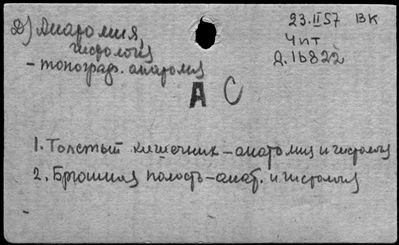 Д) Анатомия,
гистология
- топограф. анатомия
23.II57 ВК
Чит
Д.16822
А С
1. Толстый кишечник - анатомия и гистология
2. Брюшная полость - анат. и гистология